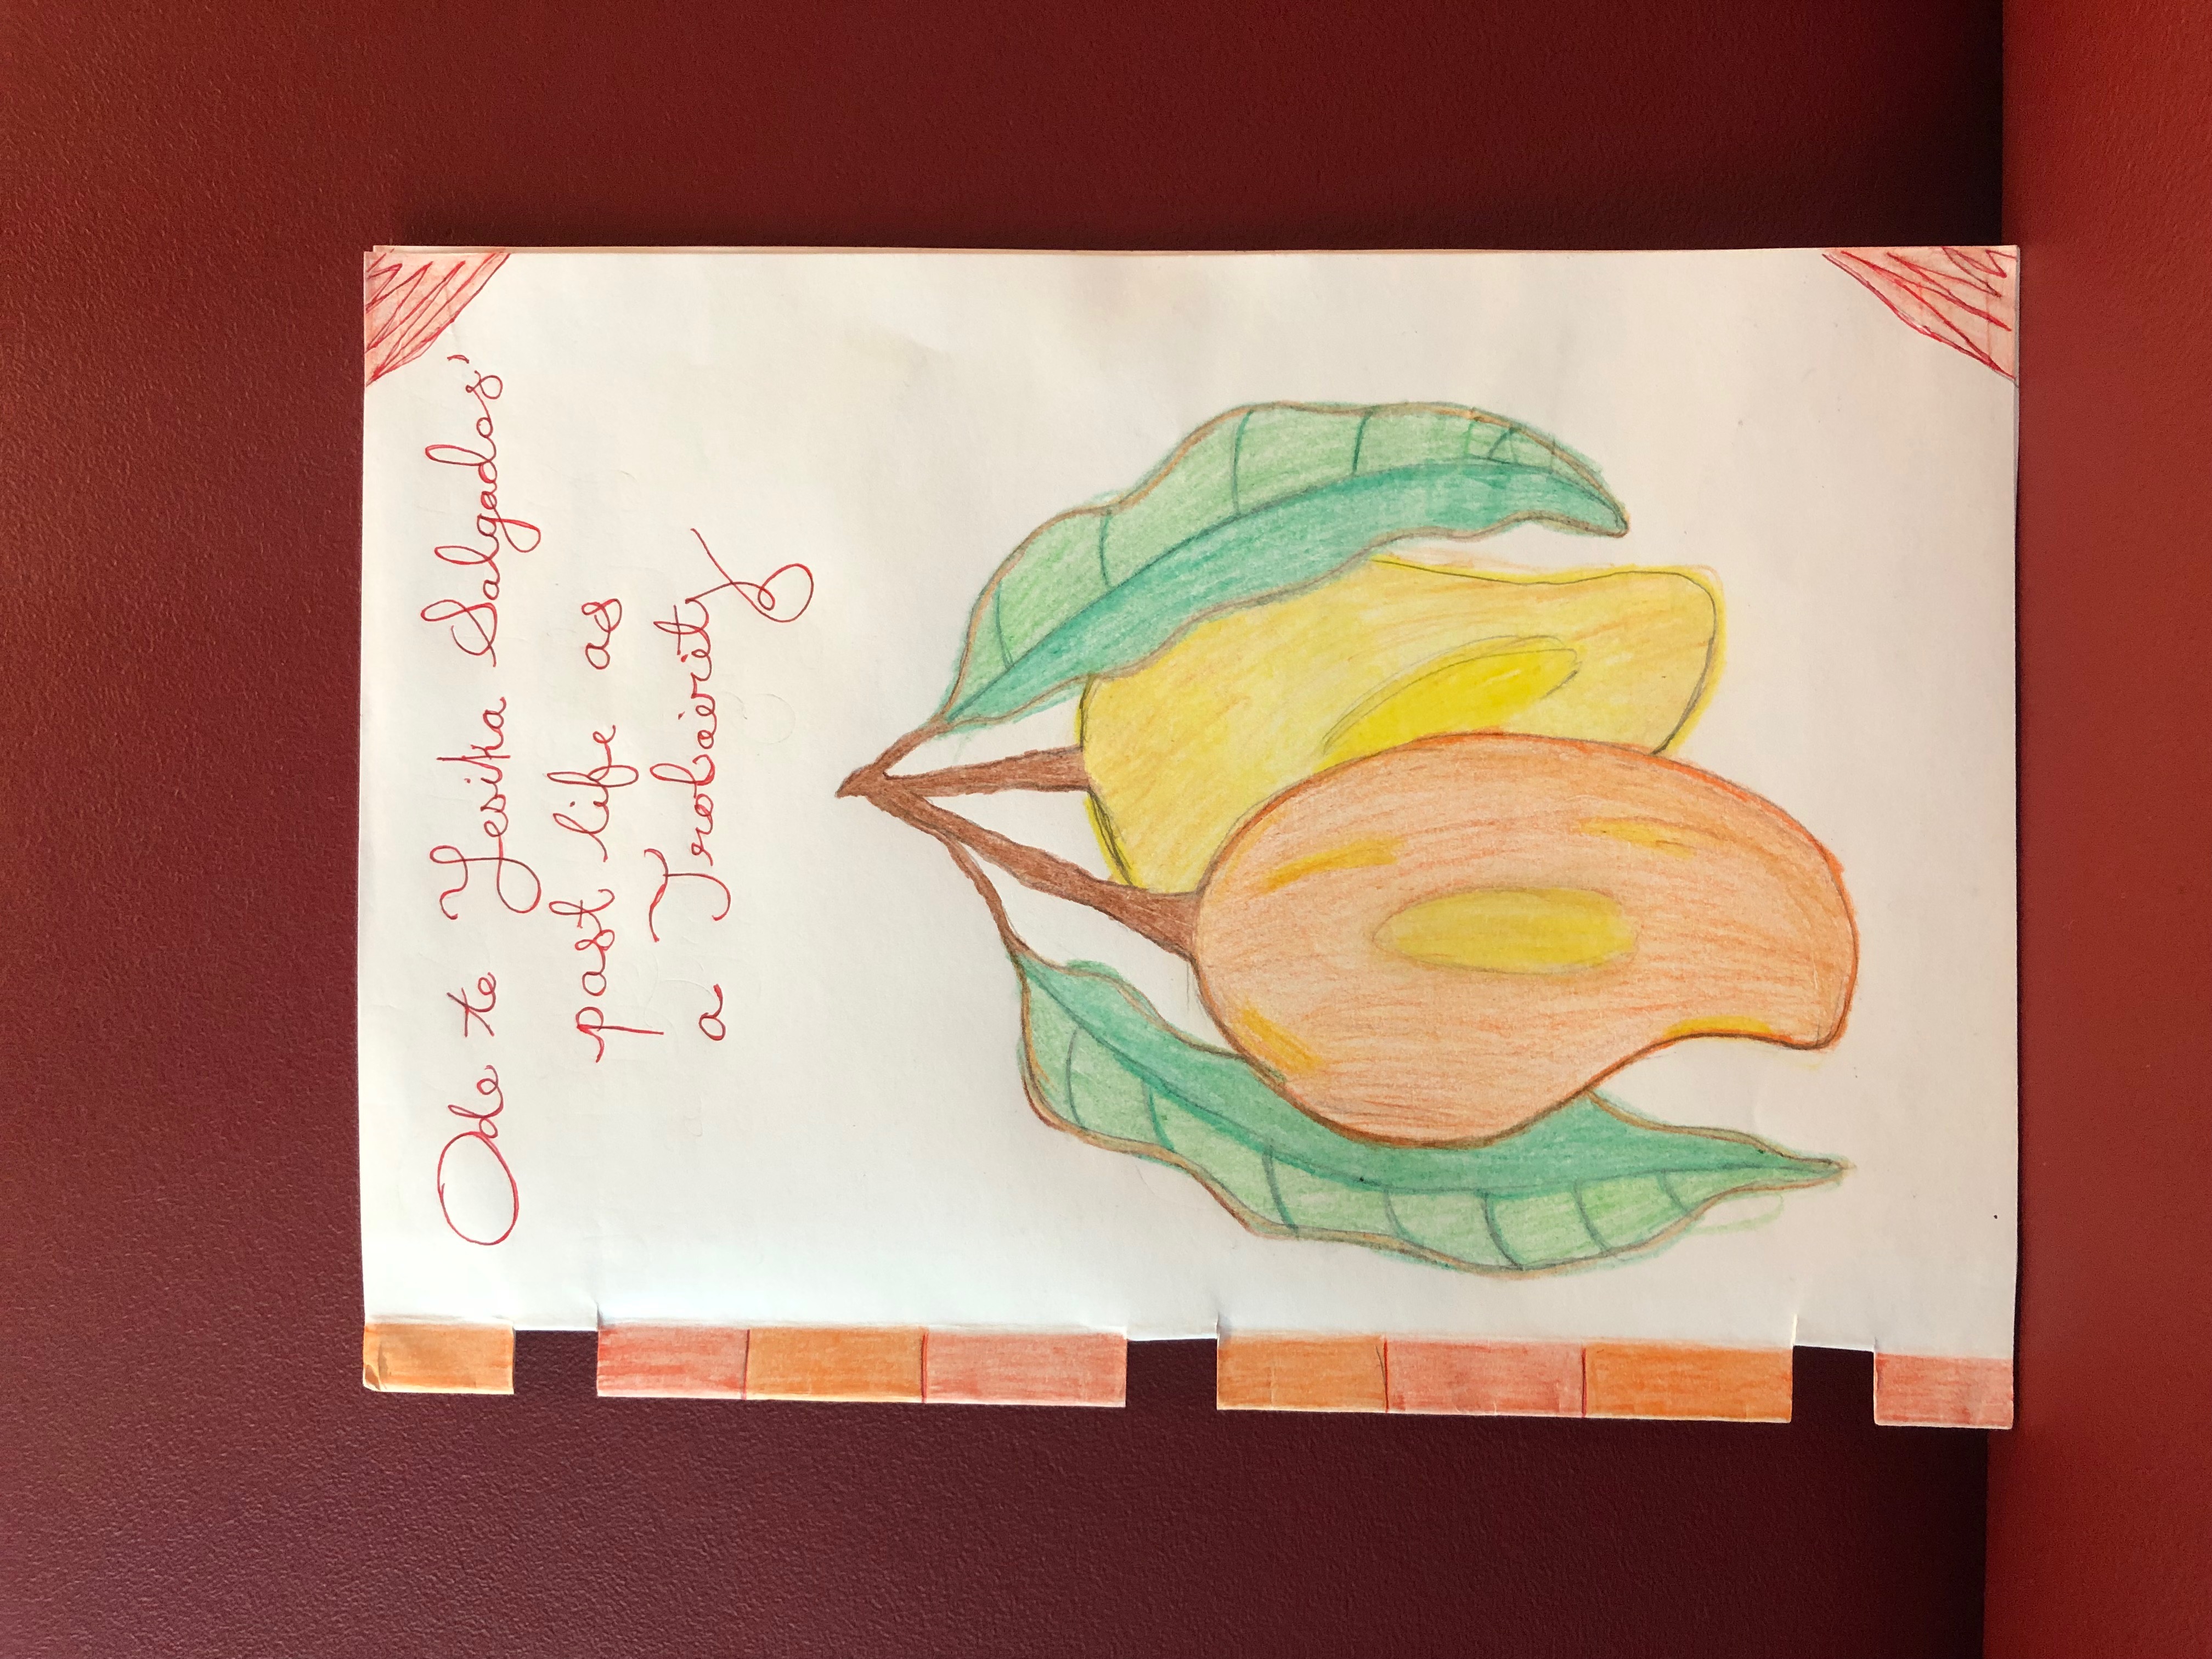 Ode to Yesika Salgados'
past life as
a Trobairitz